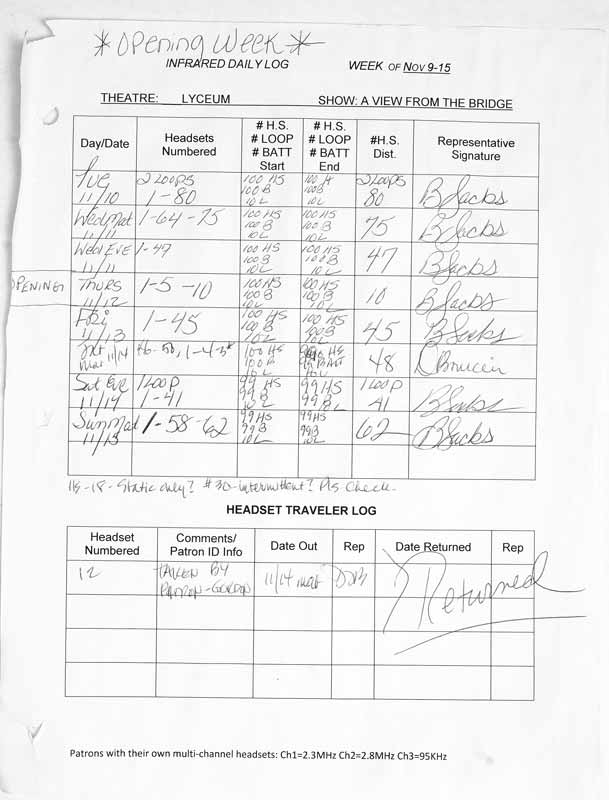 *OPENING WEEK*
INFRARED DAILY LOG WEEK OF NOV 9-15
THEATRE: LYCEUM SHOW: A VIEW FROM THE BRIDGE
Day/Date Headsets Numbered # H.S. # LOOP # BATT Start # H.S. # LOOP # BATT End #H.S. Dist. Representative Signature
Tue 11/10 2 LOOPS 1-80 100 HS 100 B 10 L 100 H 100B 10 L 2 LOOPS 80 B Jacks
Wed Mat 11/11 1-64-75 100 HS 100 B 10 L 100 HS 100 B 10 L 75 B Jacks
Wed Eve 11/11 1-47 100 HS 100 B 10 L 100 HS 100 B 10 L 47 B Jacks
OPENING Thurs 11/12 1-5-10 100 HS 100 B 10 L 100 HS 100 B 10 L 10 B Jacks
Fri 11/13 1-45 100 HS 100 B 10 L 100 HS 100 B 10 L 45 B Jacks
Sat Mat 11/14 100 HS 100 B 10 L 48
Sat Eve 11/14 1 LOOP 1-41 99 HS 99 B 10 L 99 HS 99 B 10 L 1 LOOP 41 B Jacks
Sun Mat 11/15 1-58-62 99 HS 99 B 10 L 99 HS 99 B 10 L 62 B Jacks
HS-18-Static only? #30-intermittent? Pls Check.
HEADSET TRAVELER LOG
Headset Numbered Comments/ Patron ID Info Date Out Rep Date Returned Rep
12 TAKEN BY PATRON-GORDON 11/14 mat Returned
Patrons with their own multi-channel headsets: Ch1=2.3MHz Ch2=2.8MHz Ch3=95KHz